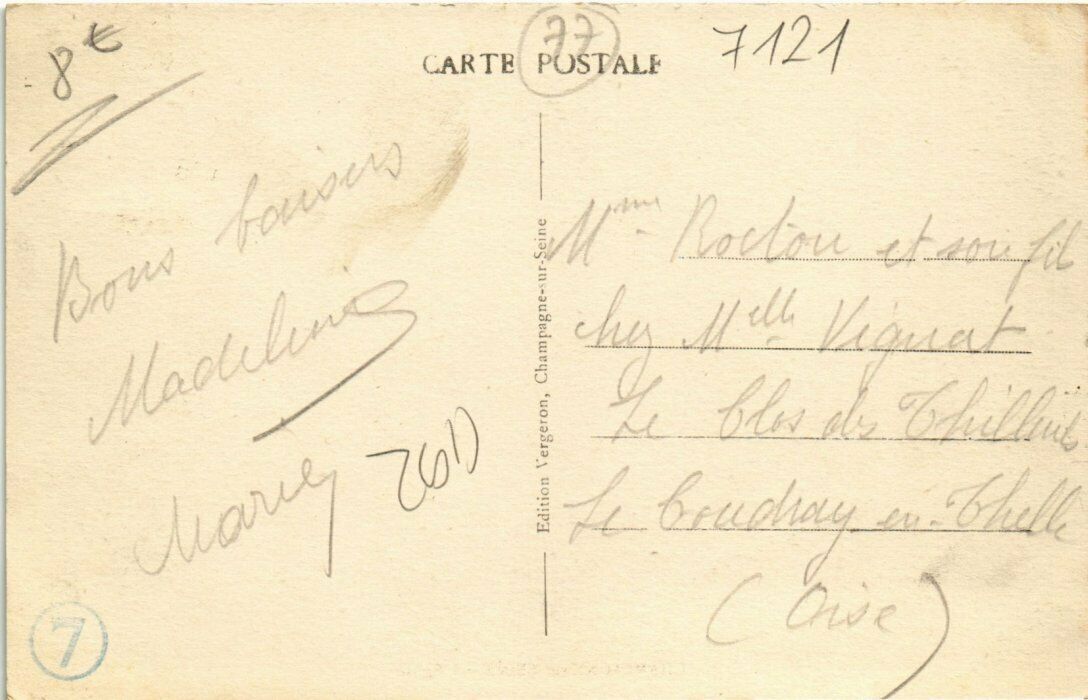 8€
CARTE POSTALE
77
7121
Bons baisers
Madeleine
Edition Vergeron, Champagne-sur-Seine
Mme Rocton et son fil
chez Melle Vignat
Le Clos des Thilleuls
Le Coudray en-Thelle
(Oise)
7